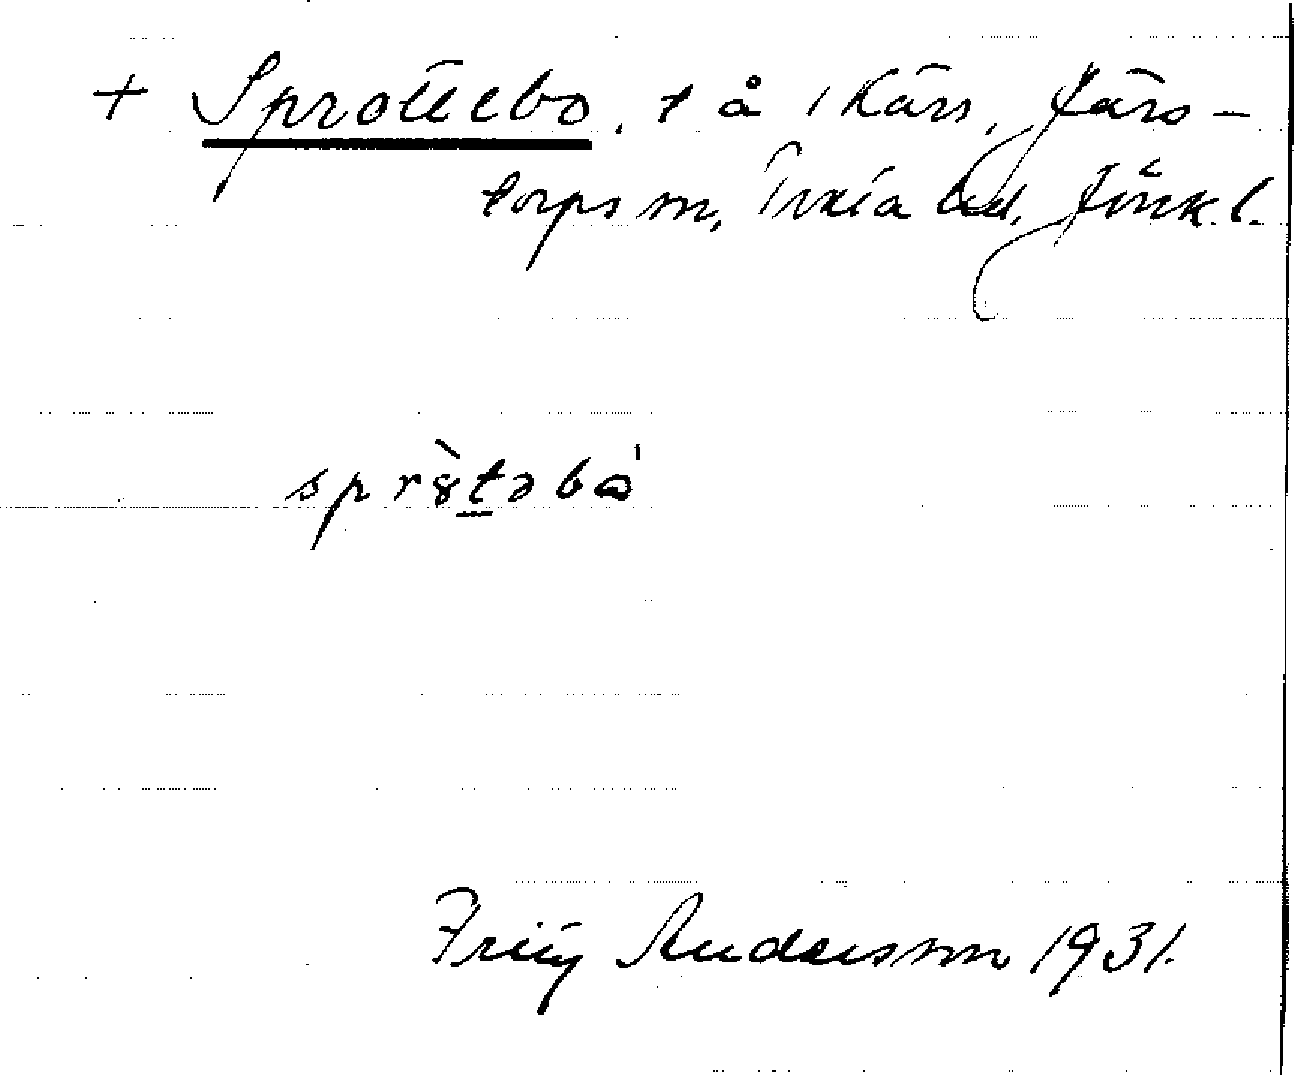 + Sprottebo, t å i Kärs, Järs-
torps sn, Tveta hd, Jönk. l.
sprȣ̀təbω'
Fritz Andersson 1931.